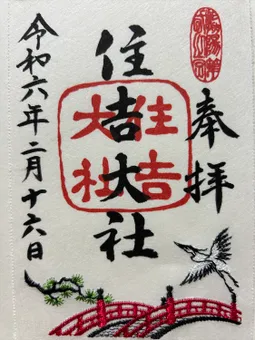 奉拝
住吉大社
住吉大社
令和六年二月十六日